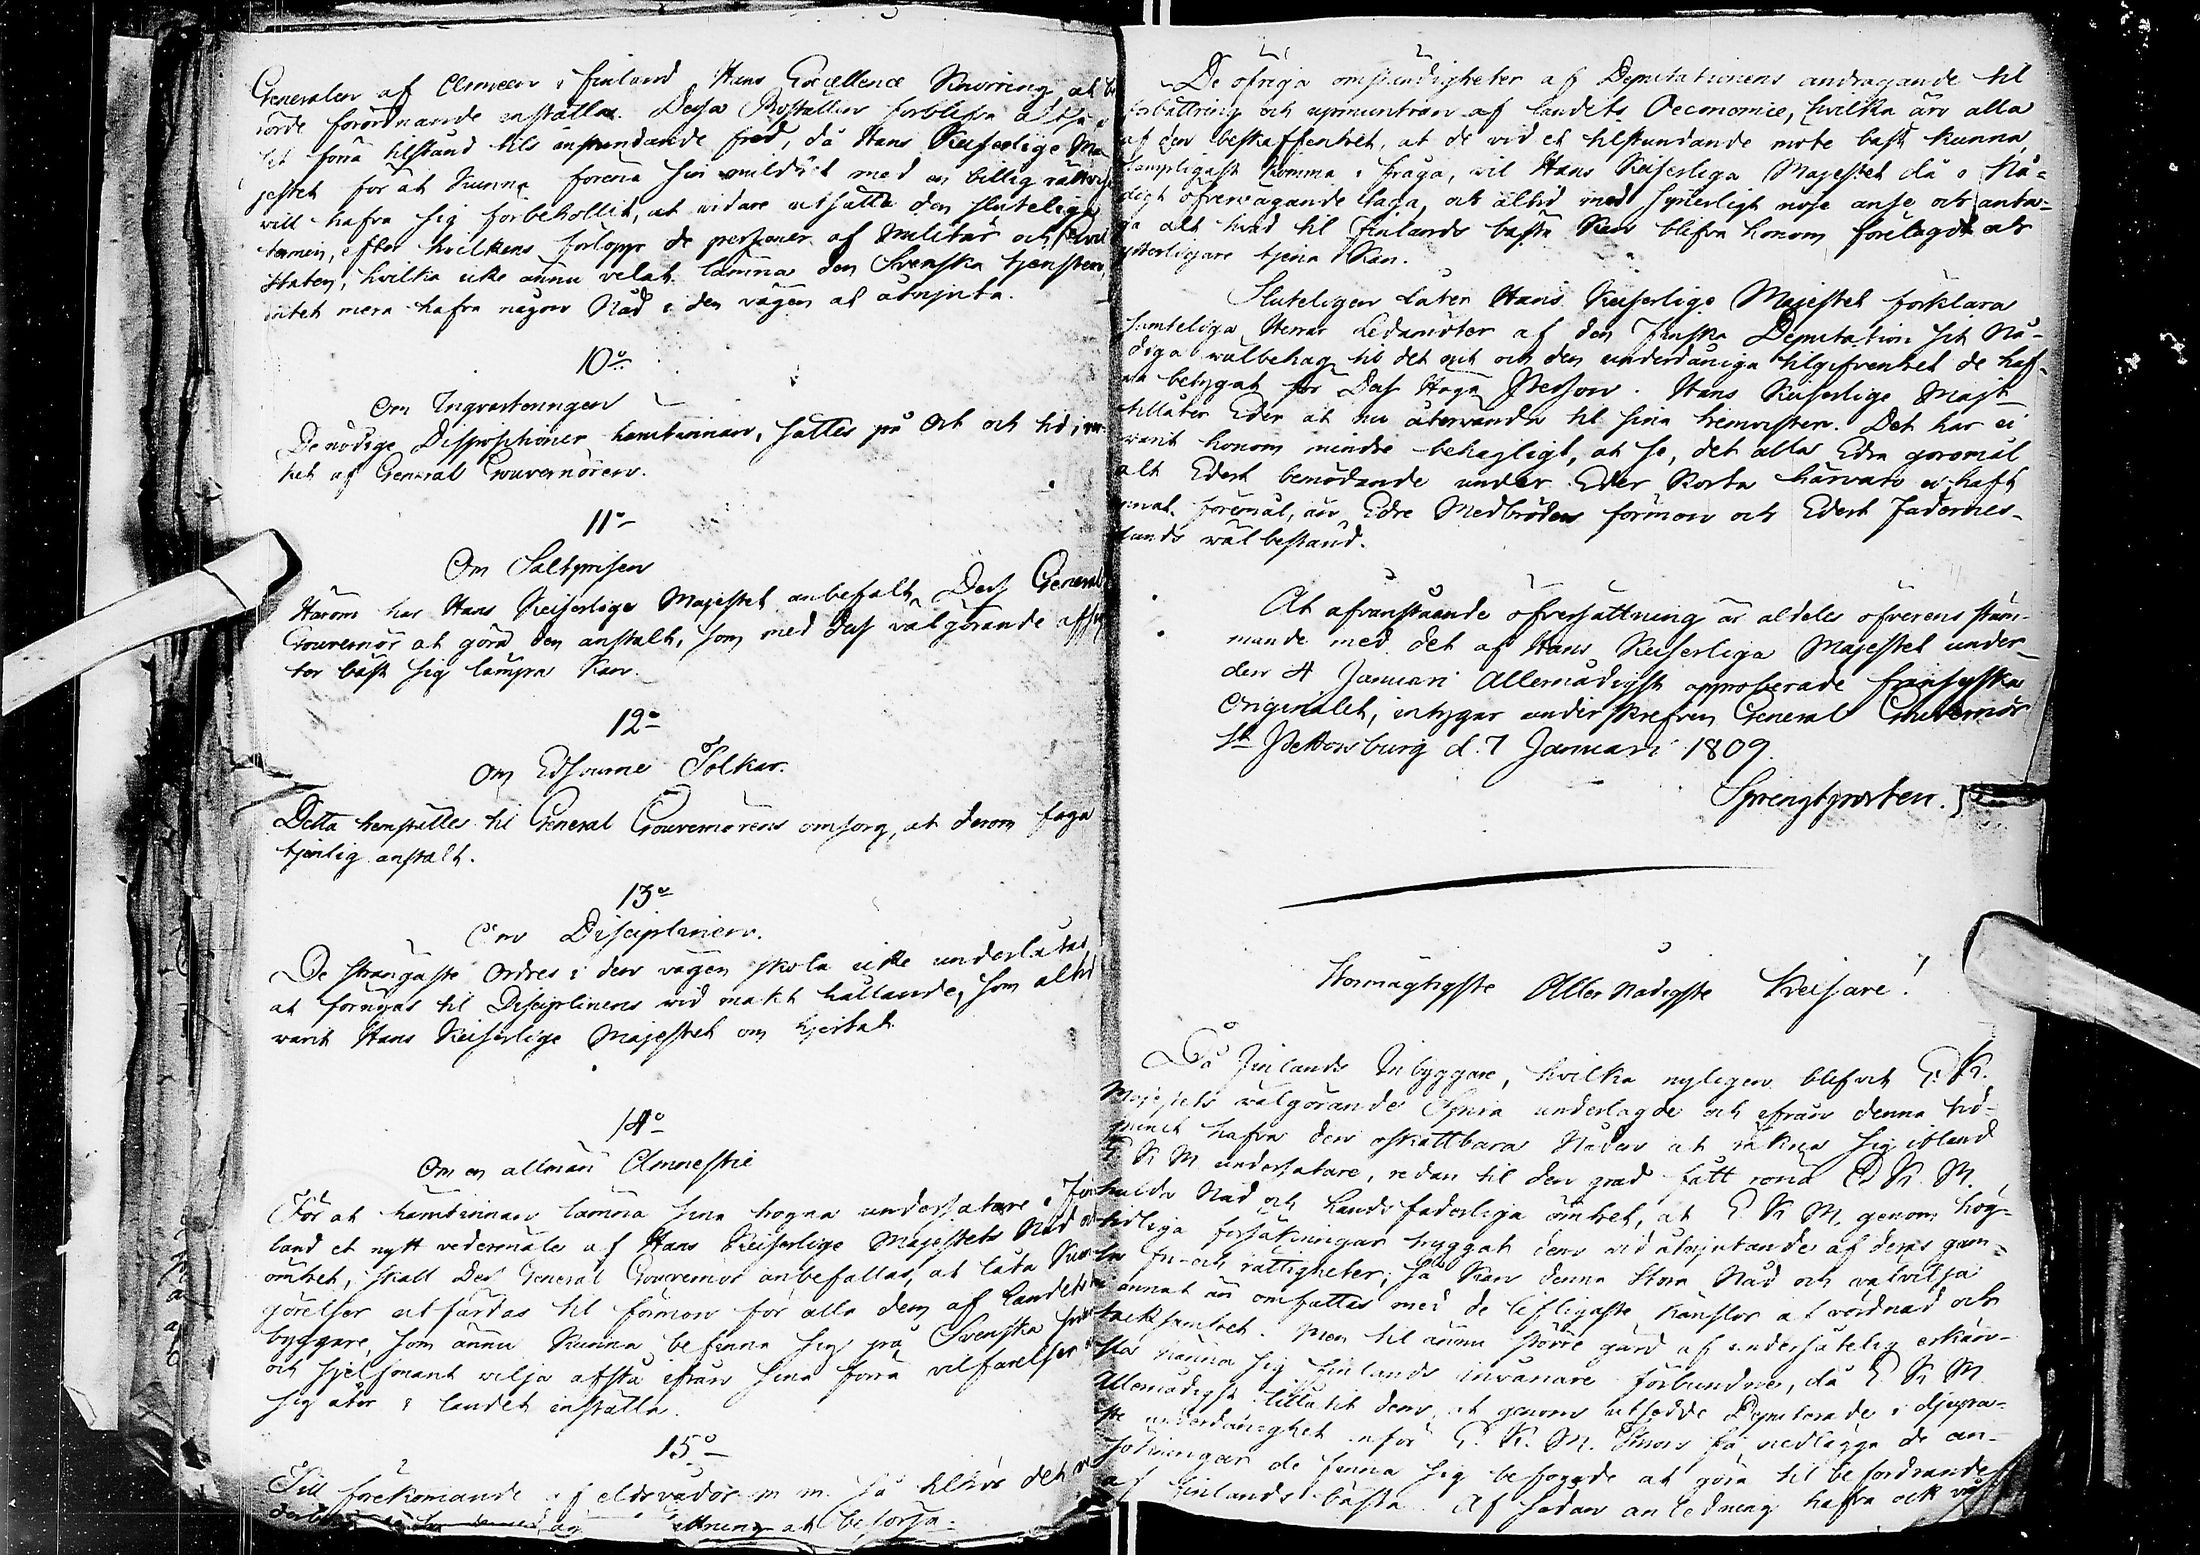 Generalen af Armeen i finland Hans Excellence Knorring at
rörde förordnande instälta. Dessa Boställen förblifva altså
förra tilstånd tils instundande fred, då Hans Keiserlige Ma
jestet för at kunna förena sin mildhet med en billig rättvisa
will hafva sig förbehollit, at vidare utsätta den slutelige
termin, efter hvilkens förlopp de personer af Militär och Civil
Staten, hvilka icke ännu velat lämna den Svenska tjensten,
intet mera hafva någon Nåd i den vägen at åtnjuta.
10º
Om Ingvarteringen
De nödige Dispositioner härutinnan, sättes på Ort och tid i ver-
ket af General Gouvernören.
11º
Om Saltprisen
Härom har Hans Keiserlige Majestet anbefalt Dess General
Gouvernör at göra den anstalt, som med dess välgörande afsig
ter bäst sig lämpa kan.
12º
Om Edsvurne Tolkar.
Detta hemställes til General Gouvernörens omsorg, at derom foga
tjenlig anstalt.
13º
Om Disciplinen.
De strängaste Ordres i den vägen skola icke underlåtas
at förnyas til Disciplinens vid makt hållande, som altid
varit Hans Keiserlige Majestet om hjertat.
14º
Om en allmän Amnestie
För at härutinnan lämna sina trogna undersåtare i Fin
land et nytt vedermäle af Hans Keiserlige Majestets Nåd och
ömhet, skall Dess General Gouvernör anbefallas, at låta Kun
görelser utfärdas til förmon för alla dem af Landets In
byggare, som ännu kunna befinna sig på Svenska sidan
och sjelfmant vilja afstå ifrån sina förra vilfarelser
sig åter i landet inställa.
15º
Till förekomande af eldsvådor m m. så tilhör det
at besörja.
De öfriga omständigheter af Deputationens andragande til
förbättring och upmuntran af landets Oeconomie, hvilka äro alla
af den beskaffenhet, at de vid et tilstundande möte bäst kunna
lämpligast komma i fråga, vil Hans Keiserliga Majestet då i Nå-
digt öfvervägande taga, och altid med synnerligt nöje anse och anta-
ga alt hvad til Finlands bästa kan blifva honom förelagdt och
ytterligare tjena kan.
Sluteligen låter Hans Keiserlige Majestet förklara
samtelige Herrar Ledamöter af den Finska Deputation sit Nå-
diga wälbehag til det nit och den underdåniga tilgifvenhet de haf-
va betygat för Dess Höga Person. Hans Keiserlige Majt
tillåter Eder at nu återvända til sina hemvisten. Det har ei
varit honom mindre behagligt, at se, det alla Edra göromål
alt Edert bemödande under Eder korta härvaro ei haft
annat föremål, än Edre Medbröders förmon och Edert Fädernes-
lands wälbestånd.
At ofvanstående öfversättning är aldeles öfverens stäm-
mande med det af Hans Keiserliga Majestet under
den 4 Januari Allernådigst approberade fransyska
Originalet, intygar underskrefven General Gouvernör
St Pettersburg d. 7 Januari 1809.
Sprengtporten.
Stormägtigste Aller Nådigste Keisare!
Då Finlands Inbyggare, hvilka nyligen blifvit E. K.
Majestets välgörande Spira underlagde och ifrån denna tid-
punct hafva den oskattbara Nåden at räkna sig ibland
E K M undersåtare, redan til den grad fått röna E. K. M.
milda Nåd och Landsfaderliga ömhet, at E K M, genom hög-
tidliga försäkringar tryggat dem vid åtnjutande af deras gam-
la fri- och rättigheter; så kan denna stora Nåd och välvilja
ei annat än omfattas med de lifligaste känslor af vördnad och
tacksamhet. Men til ännu större gärd af undersåtelig erkän-
sla känna sig Finlands invånare förbundne, då E. K. M.
Allernådigst tillåtit dem, at genom utsedde Deputerade i djupa-
ste underdånighet inför E. K. M. Thron få nedlägga de an-
sökningar de finna sig befogade at göra til befordrande
af Finlands bästa. Af sådan anledning hafva ock vi